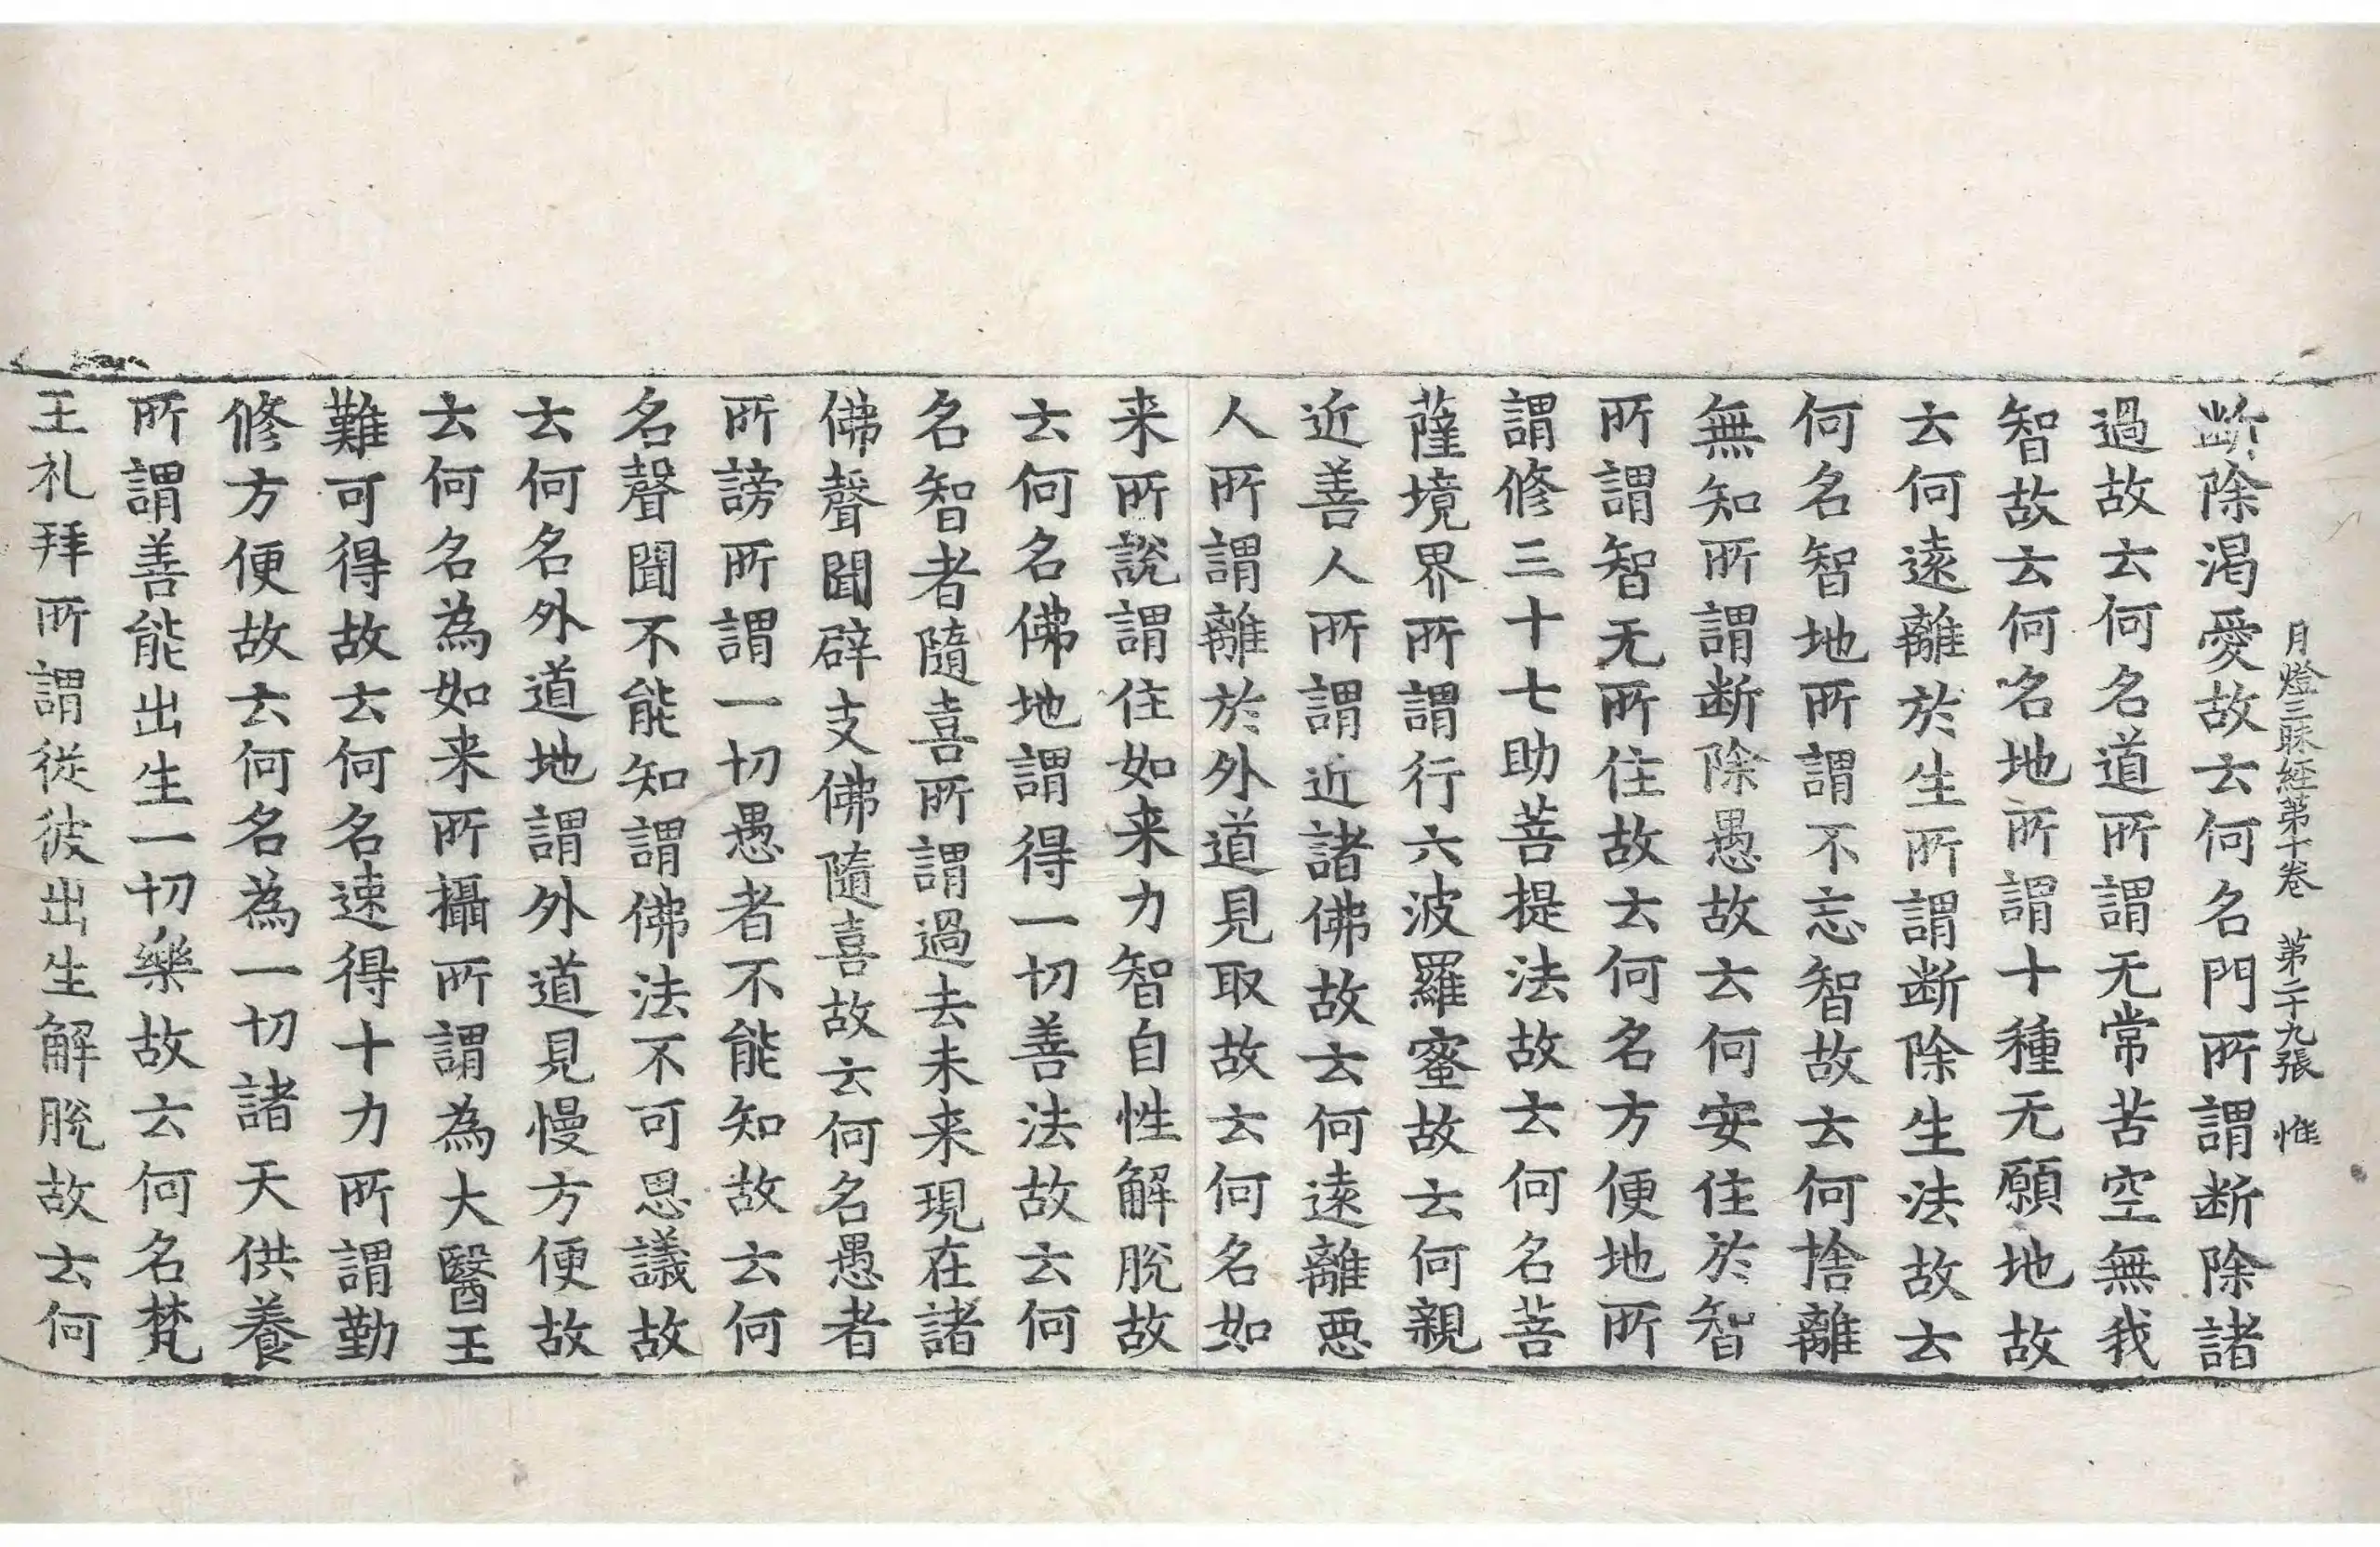 月燈三昧経第十卷　第二十九張　惟
断除渇愛故去何名門所謂断除諸
過故去何名道所謂无常苦空無我
智故去何名地所謂十種无願地故
去何遠離於生所謂断除生法故去
何名智地所謂不忘智故去何捨離
無知所謂断除愚故去何安住於智
所謂智无所住故去何名方便地所
謂修三十七助菩提法故去何名菩
薩境界所謂行六波羅蜜故去何親
近善人所謂近諸佛故去何遠離悪
人所謂離於外道見取故去何名如
来所說謂住如来力智自性解脫故
去何名佛地謂得一切善法故去何
名智者隨喜所謂過去未来現在諸
佛聲聞辟支佛隨喜故去何名愚者
所謗所謂一切愚者不能知故去何
名聲聞不能知謂佛法不可思議故
去何名外道地謂外道見慢方便故
去何名為如来所攝所謂為大醫王
難可得故去何名速得十力所謂勤
修方便故去何名為一切諸天供養
所謂善能出生一切樂故去何名梵
王礼拜所謂從彼出生解脫故去何